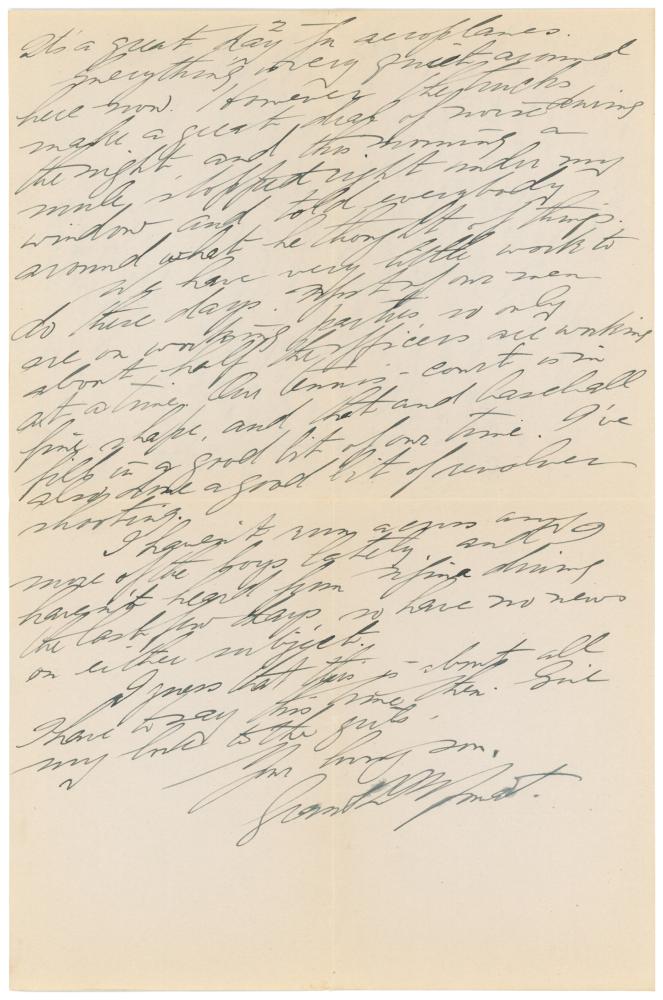 It's a great day for aeroplanes.
Everything is very quiet around
here now. However the trucks
make a great deal of noise during
the night, and this morning a
mule stopped right under my
window and told everybody
around what he thought of things.
We have very little work to
do these days. Most of our men
are on working parties so only
about half the officers are working
at a time. Our tennis-court is in
fine shape, and that and baseball
fills in a good bit of our time. I've
also done a good bit of revolver
shooting.
I haven't run across any
more of the boys lately and
haven't heard from during
the last few days so have no news
on either subject.
I guess that this is about all
I have to say this time then. Give
my love to the girls.
Your loving son,
Grant